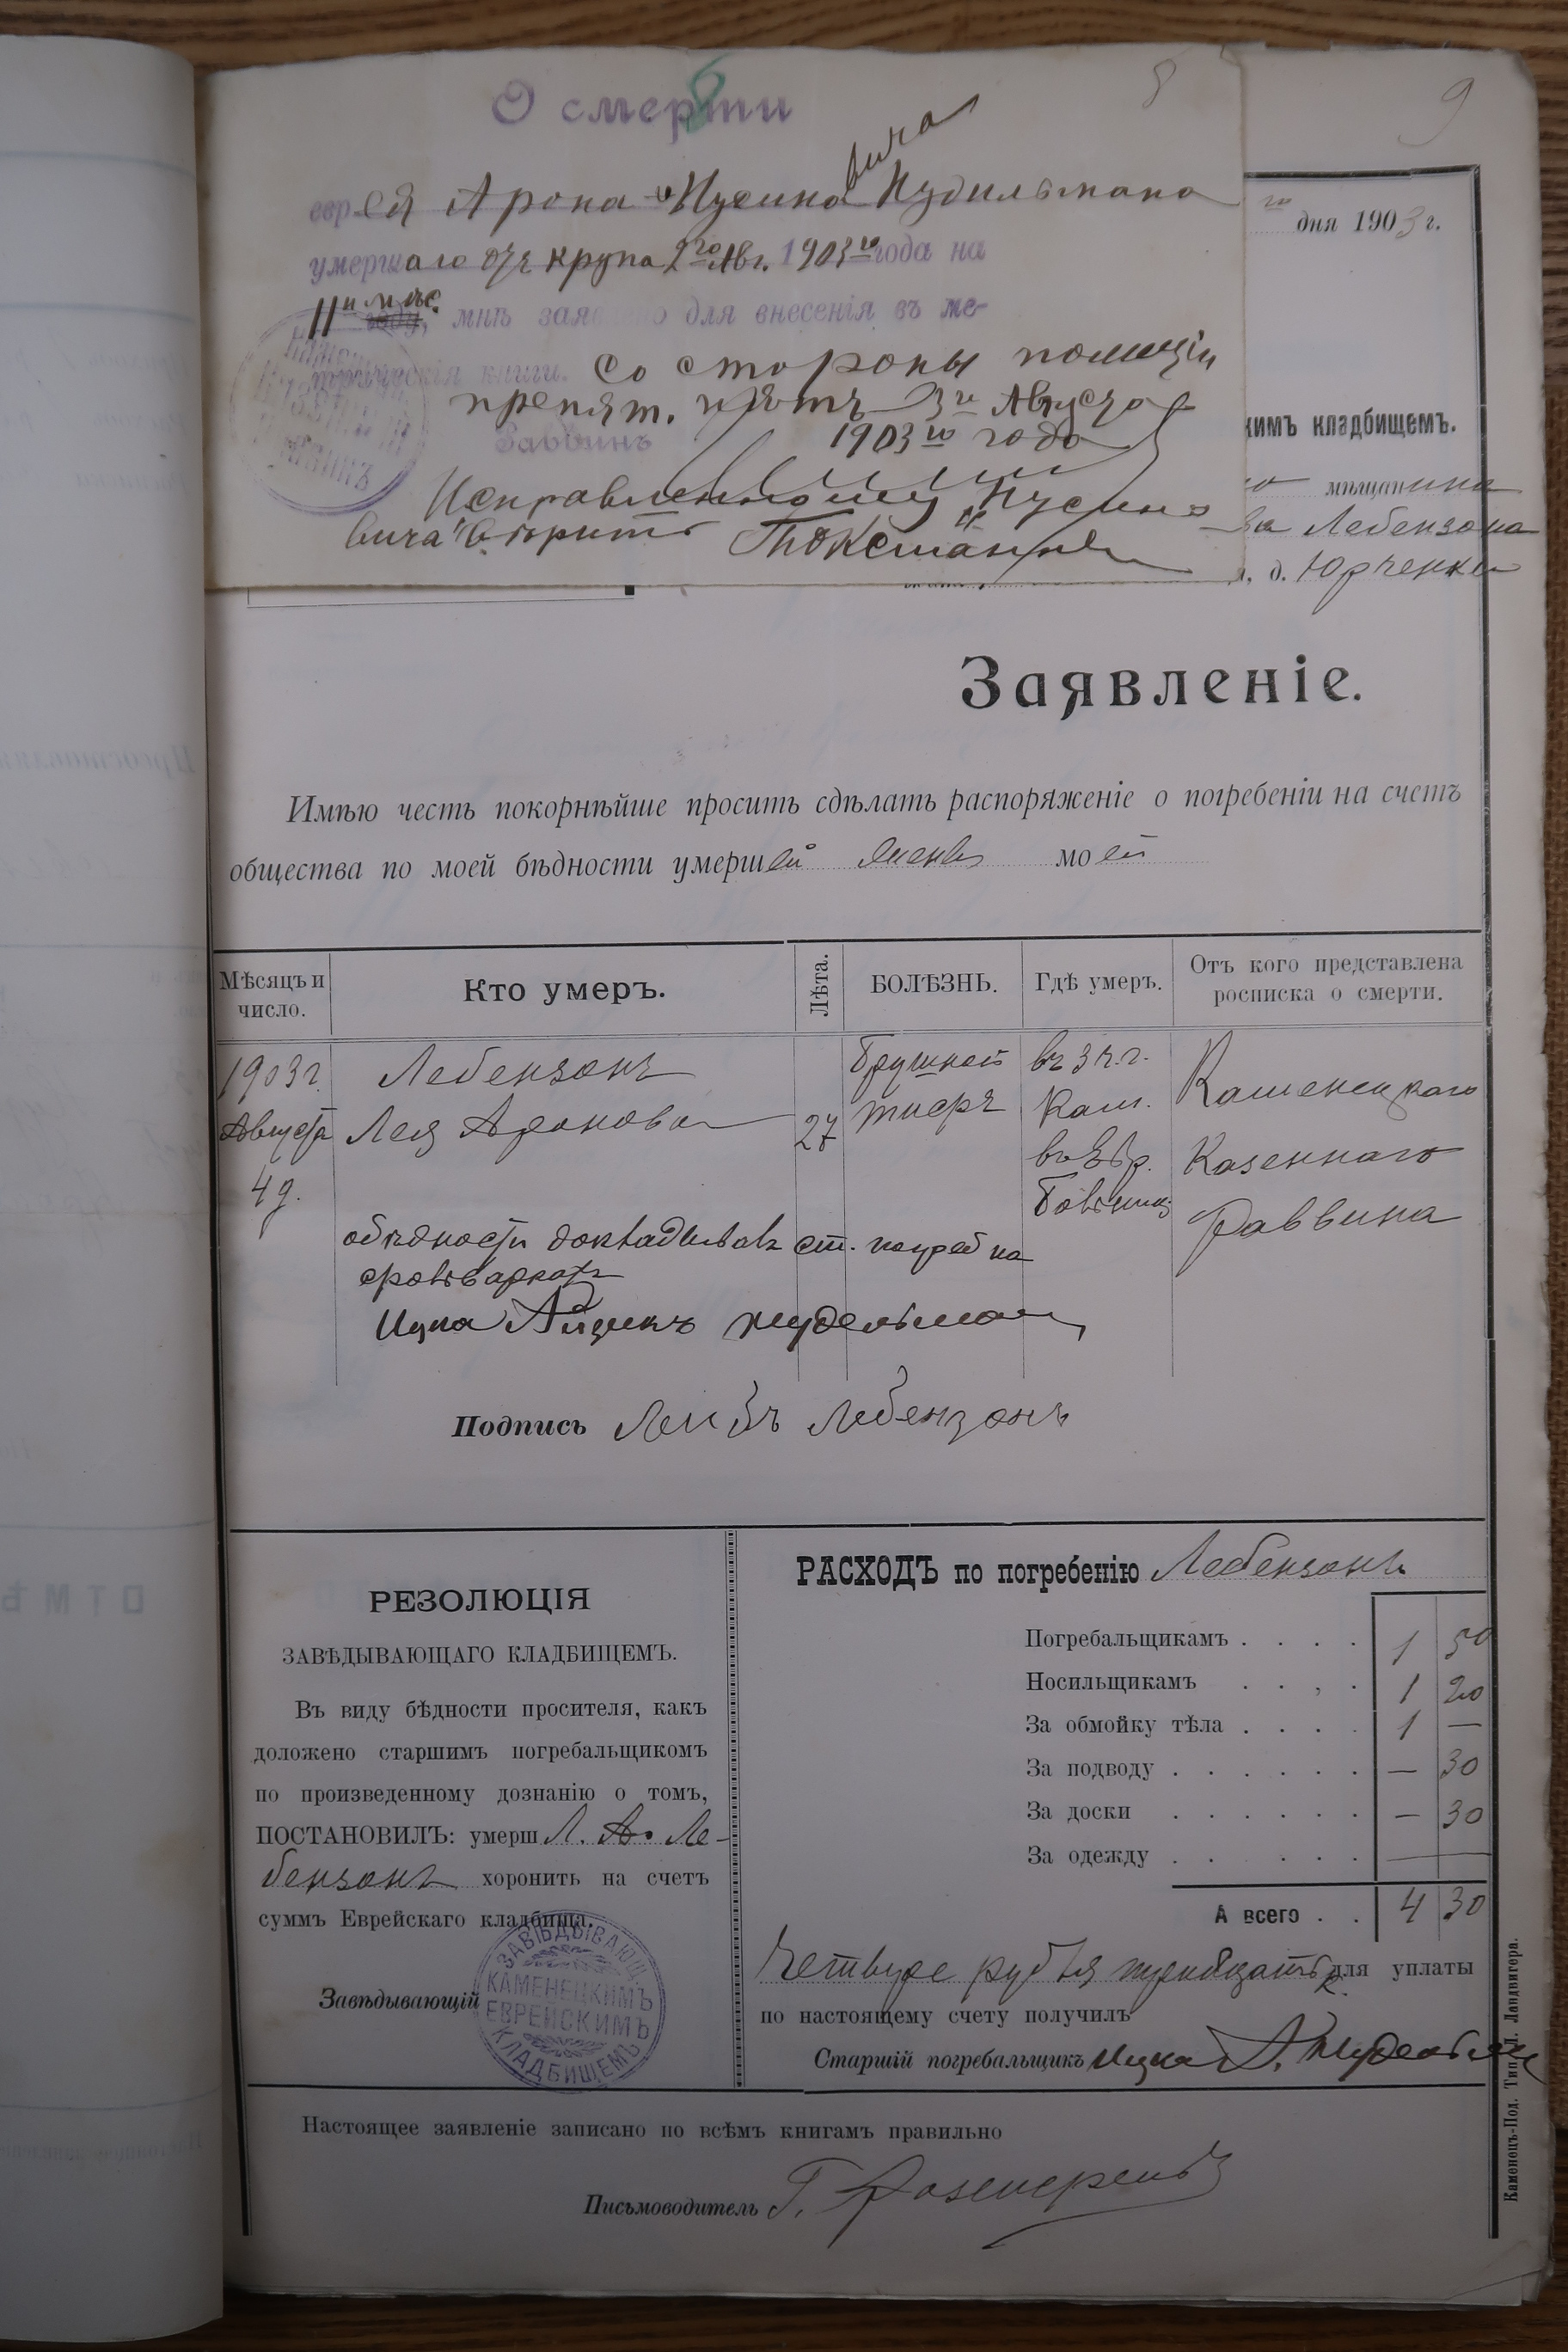 8
9
О смерти
еврея Арона Нусиновича Нудильмана
умершаго отъ крупа 2го Авг. 1903го года на
11м мѣс. году, мнѣ заявлено для внесенія въ ме-
трическія книги. Со стороны полиціи
препят. нѣтъ 3го Августа
Раввинъ 1903го года
Исправленному "Нусино-
вича" вѣрить
дня 1903 г.
кимъ кладбищемъ.
мѣщанина
Лебензона
д. Юрченки
Заявленіе.
Имѣю честь покорнѣйше просить сдѣлать распоряженіе о погребеніи на счетъ
общества по моей бѣдности умершей жены моей
Мѣсяцъ и число. Кто умеръ. Лѣта. БОЛѢЗНЬ. Гдѣ умеръ. Отъ кого представлена росписка о смерти.
1903г. Лебензонъ Брюшной въ зд. г. Каменецкаго
Августа Лея Аронова 27 тифъ Кам.
въ Евр. Казеннаго
4 д. Больниц. Раввина
обѣдности докладывалъ ст. погреб на
Ицка Айзикъ Нудельман
Подпись Лейбъ Лебензонъ
РЕЗОЛЮЦІЯ
ЗАВѢДЫВАЮЩАГО КЛАДБИЩЕМЪ.
Въ виду бѣдности просителя, какъ
доложено старшимъ погребальщикомъ
по произведенному дознанію о томъ,
ПОСТАНОВИЛЪ: умерш Л. А. Ле-
бензонъ хоронить на счетъ
суммъ Еврейскаго кладбища.
Завѣдывающій
ЗАВѢДЫВАЮЩ.
КАМЕНЕЦКИМЪ
ЕВРЕЙСКИМЪ
КЛАДБИЩЕМЪ
РАСХОДЪ по погребенію Лебензонъ
Погребальщикамъ . . . . 1 50
Носильщикамъ . . . . 1 20
За обмойку тѣла . . . . 1 —
За подводу . . . . . . — 30
За доски . . . . . . — 30
За одежду . . . . . . — —
А всего . . 4 30
Четыре рубля тридцать к. для уплаты
по настоящему счету получилъ
Старшій погребальщикъ Ицка А. Нудельман
Настоящее заявленіе записано по всѣмъ книгамъ правильно
Письмоводитель Г.
Каменецъ-Под. Тип. Л. Ландвигера.